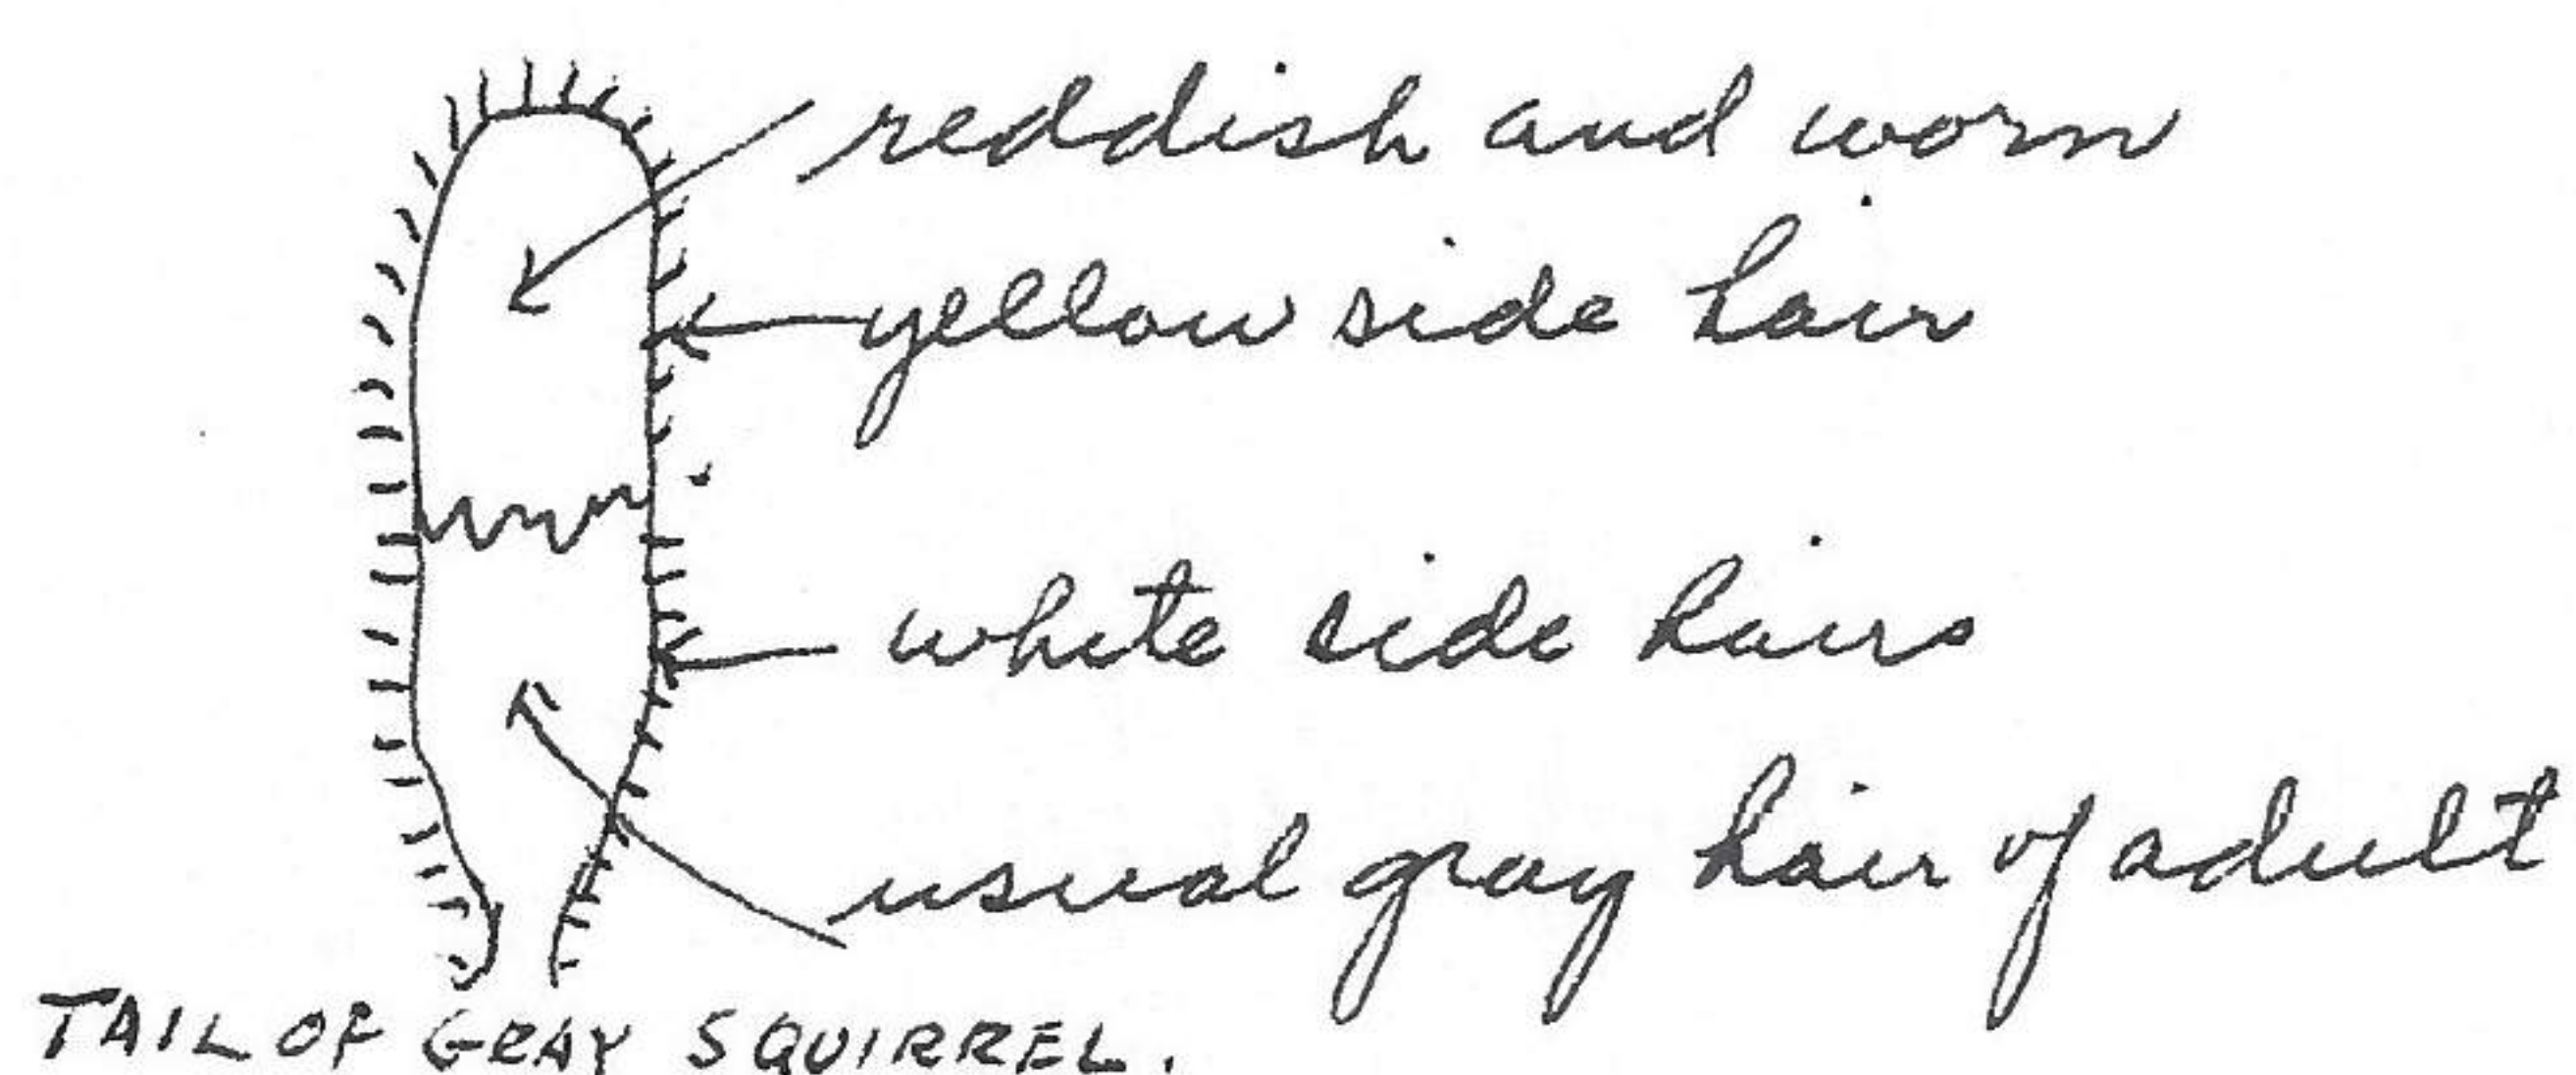 reddish and worn
yellow side hair
white side hairs
usual gray hair of adult
TAIL OF GRAY SQUIRREL.